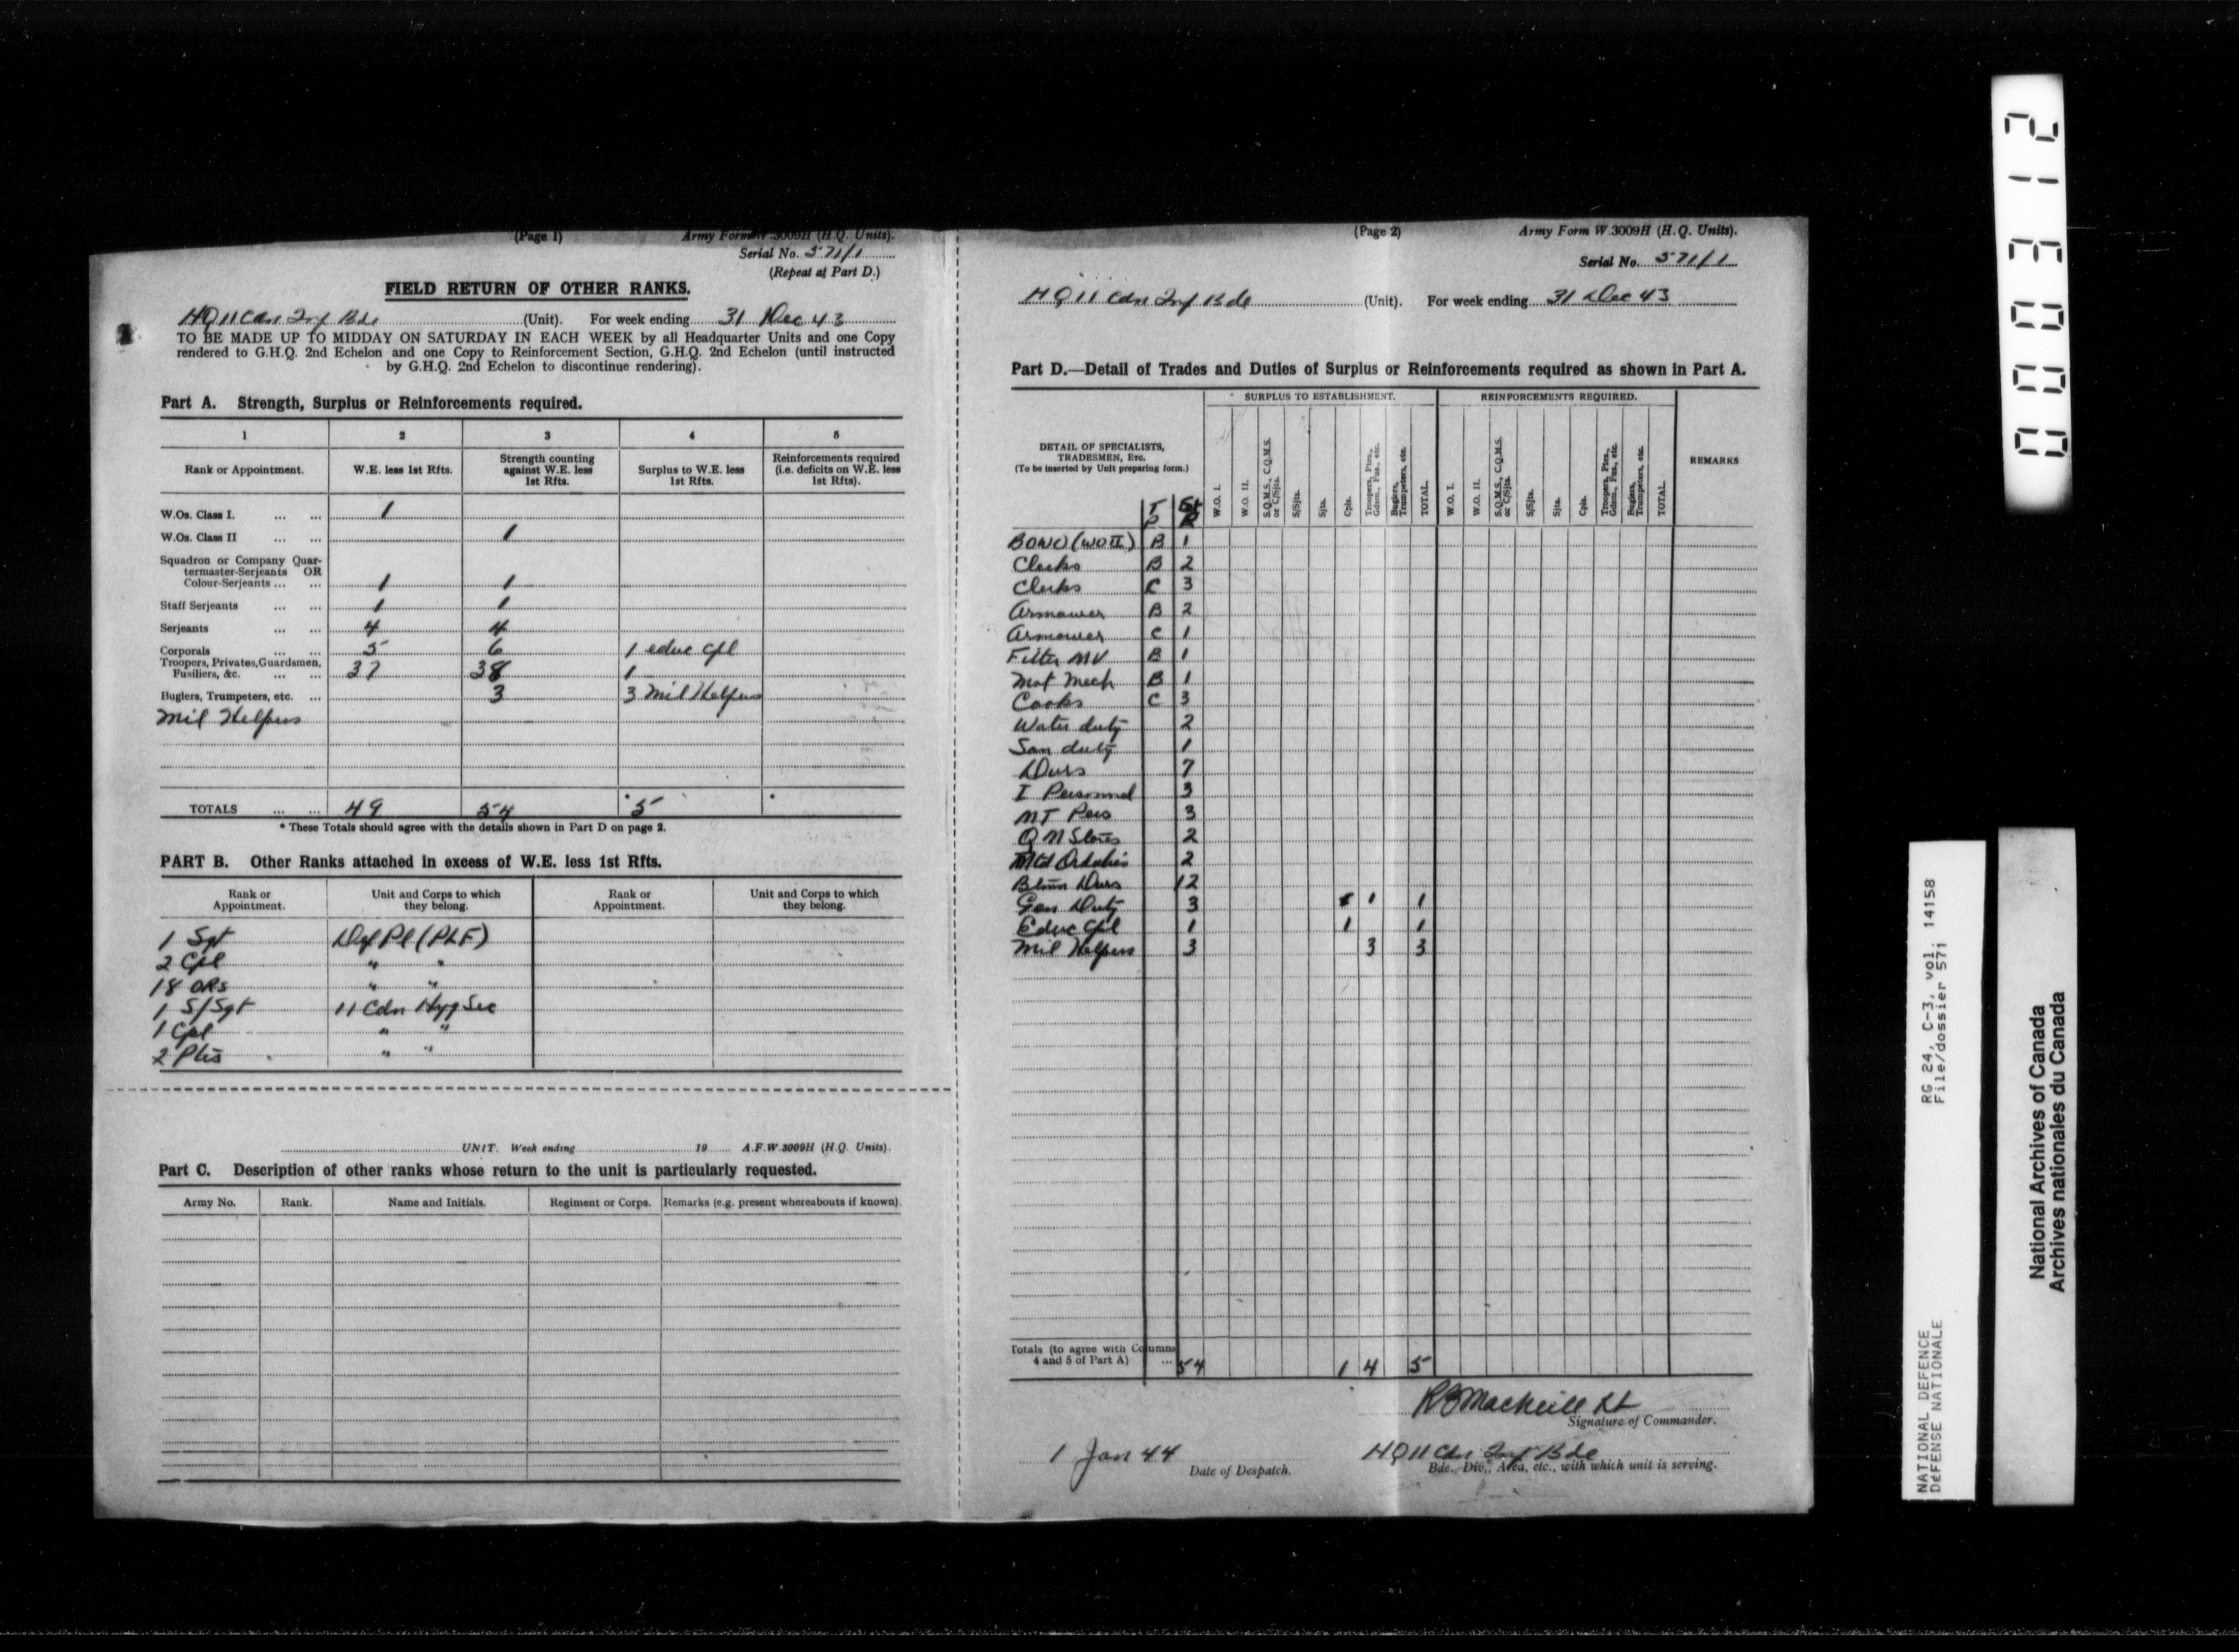 (Page 1) Army Form W.3009H (H.Q. Units).
Serial No. 571/1
(Repeat at Part D.)
FIELD RETURN OF OTHER RANKS.
HQ 11 Cdn Inf Bde (Unit). For week ending 31 Dec 43
TO BE MADE UP TO MIDDAY ON SATURDAY IN EACH WEEK by all Headquarter Units and one Copy
rendered to G.H.Q. 2nd Echelon and one Copy to Reinforcement Section, G.H.Q. 2nd Echelon (until instructed
by G.H.Q. 2nd Echelon to discontinue rendering).
Part A. Strength, Surplus or Reinforcements required.
1 2 3 4 5
Rank or Appointment. W.E. less 1st Rfts. Strength counting against W.E. less 1st Rfts. Surplus to W.E. less 1st Rfts. Reinforcements required (i.e. deficits on W.E. less 1st Rfts).
W.Os. Class I. ... ... 1
W.Os. Class II ... ... 1
Squadron or Company Quar-
termaster-Serjeants OR
Colour-Serjeants ... ... 1 1
Staff Serjeants ... ... 1 1
Serjeants ... ... 4 4
Corporals ... ... 5 6 1 educ Cpl
Troopers, Privates, Guardsmen,
Fusiliers, &c. ... ... 37 38 1
Buglers, Trumpeters, etc. ... 3 3 Mil Helpers
Mil Helpers
TOTALS ... ... 49 54 * 5 *
* These Totals should agree with the details shown in Part D on page 2.
PART B. Other Ranks attached in excess of W.E. less 1st Rfts.
Rank or Appointment. Unit and Corps to which they belong. Rank or Appointment. Unit and Corps to which they belong.
1 Sgt Def Pl (PLF)
2 Cpl " "
18 ORs " "
1 S/Sgt 11 Cdn Hyg Sec
1 Cpl " "
2 Ptes " "
UNIT. Week ending 19 A.F.W.3009H (H.Q. Units).
Part C. Description of other ranks whose return to the unit is particularly requested.
Army No. Rank. Name and Initials. Regiment or Corps. Remarks (e.g. present whereabouts if known).
(Page 2) Army Form W.3009H (H.Q. Units).
Serial No. 571/1
HQ 11 Cdn Inf Bde (Unit). For week ending 31 Dec 43
Part D.—Detail of Trades and Duties of Surplus or Reinforcements required as shown in Part A.
SURPLUS TO ESTABLISHMENT. REINFORCEMENTS REQUIRED.
DETAIL OF SPECIALISTS,
TRADESMEN, Etc.
(To be inserted by Unit preparing form.)
W.O. I. W.O. II. S.Q.M.S., C.Q.M.S. or C/Sjts. S/Sjts. Sjts. Cpls. Troopers, Ptes., Gdsm., Fus., etc. Buglers, Trumpeters, etc. TOTAL. W.O. I. W.O. II. S.Q.M.S., C.Q.M.S. or C/Sjts. S/Sjts. Sjts. Cpls. Troopers, Ptes., Gdsm., Fus., etc. Buglers, Trumpeters, etc. TOTAL. REMARKS
BOWO (WO II) B 1
Clerks B 2
Clerks C 3
Armourer B 2
Armourer C 1
Fitter MV B 1
Mot Mech B 1
Cooks C 3
Water duty 2
San duty 1
Dvrs 7
I Personnel 3
MT Pers 3
QM Stores 2
Mtd Orderlies 2
Btmn Dvrs 12
Gen Duty 3 1 1
Educ Cpl 1 1 1
Mil Helpers 3 3 3
Totals (to agree with Columns
4 and 5 of Part A) ... 54 1 4 5
RB MacNeill Lt
Signature of Commander.
1 Jan 44 HQ 11 Cdn Inf Bde
Date of Despatch. Bde., Div., Area, etc., with which unit is serving.
000312
NATIONAL DEFENCE RG 24, C-3, vol. 14158
DÉFENSE NATIONALE File/dossier 571
National Archives of Canada
Archives nationales du Canada